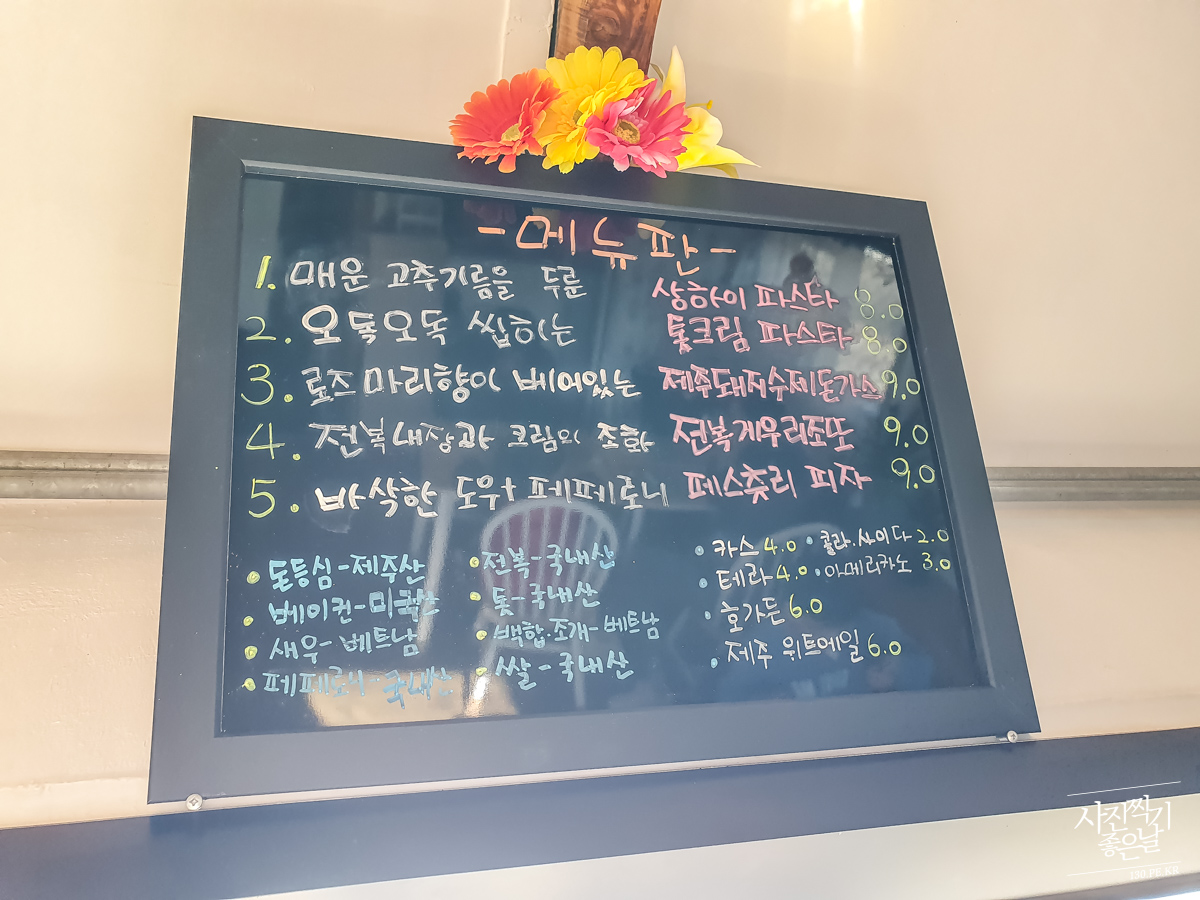 -메뉴판-
1. 매운 고추기름을 두룬 상하이 파스타 8.0
2. 오독오독 씹히는 톳크림 파스타 8.0
3. 로즈마리향이 베어있는 제주돼지수제돈가스 9.0
4. 전복내장과 크림의 조화 전복게우리조또 9.0
5. 바삭한 도우+페페로니 페스츄리 피자 9.0
돈등심-제주산
베이컨-미국산
새우-베트남
페페로니-국내산
전복-국내산
톳-국내산
백합.조개-베트남
쌀-국내산
카스 4.0 콜라.사이다 2.0
테라 4.0 아메리카노 3.0
호가든 6.0
제주 위트에일 6.0
사진찍기
좋은날
130.PE.KR